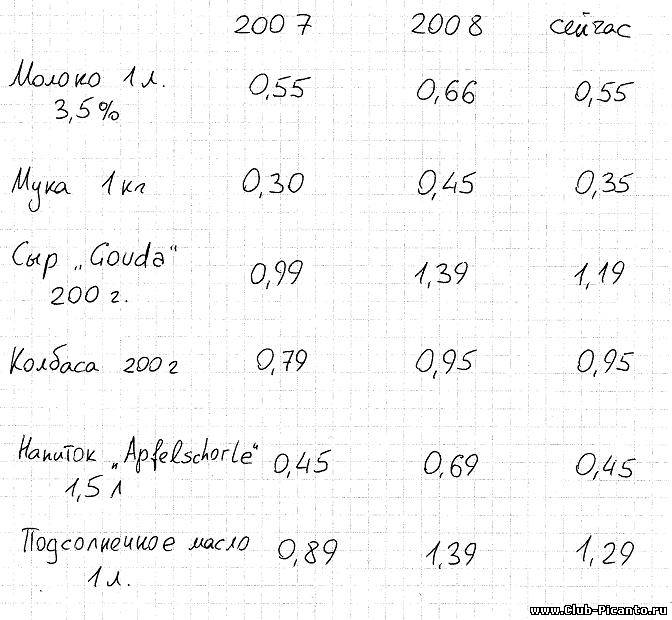 2007 2008 сейчас
Молоко 1 л. 0,55 0,66 0,55
3,5%
Мука 1 кг 0,30 0,45 0,35
Сыр „Gouda“ 0,99 1,39 1,19
200 г.
Колбаса 200 г 0,79 0,95 0,95
Напиток „Apfelschorle“ 0,45 0,69 0,45
1,5 л
Подсолнечное масло 0,89 1,39 1,29
1 л.
www.Club-Picanto.ru